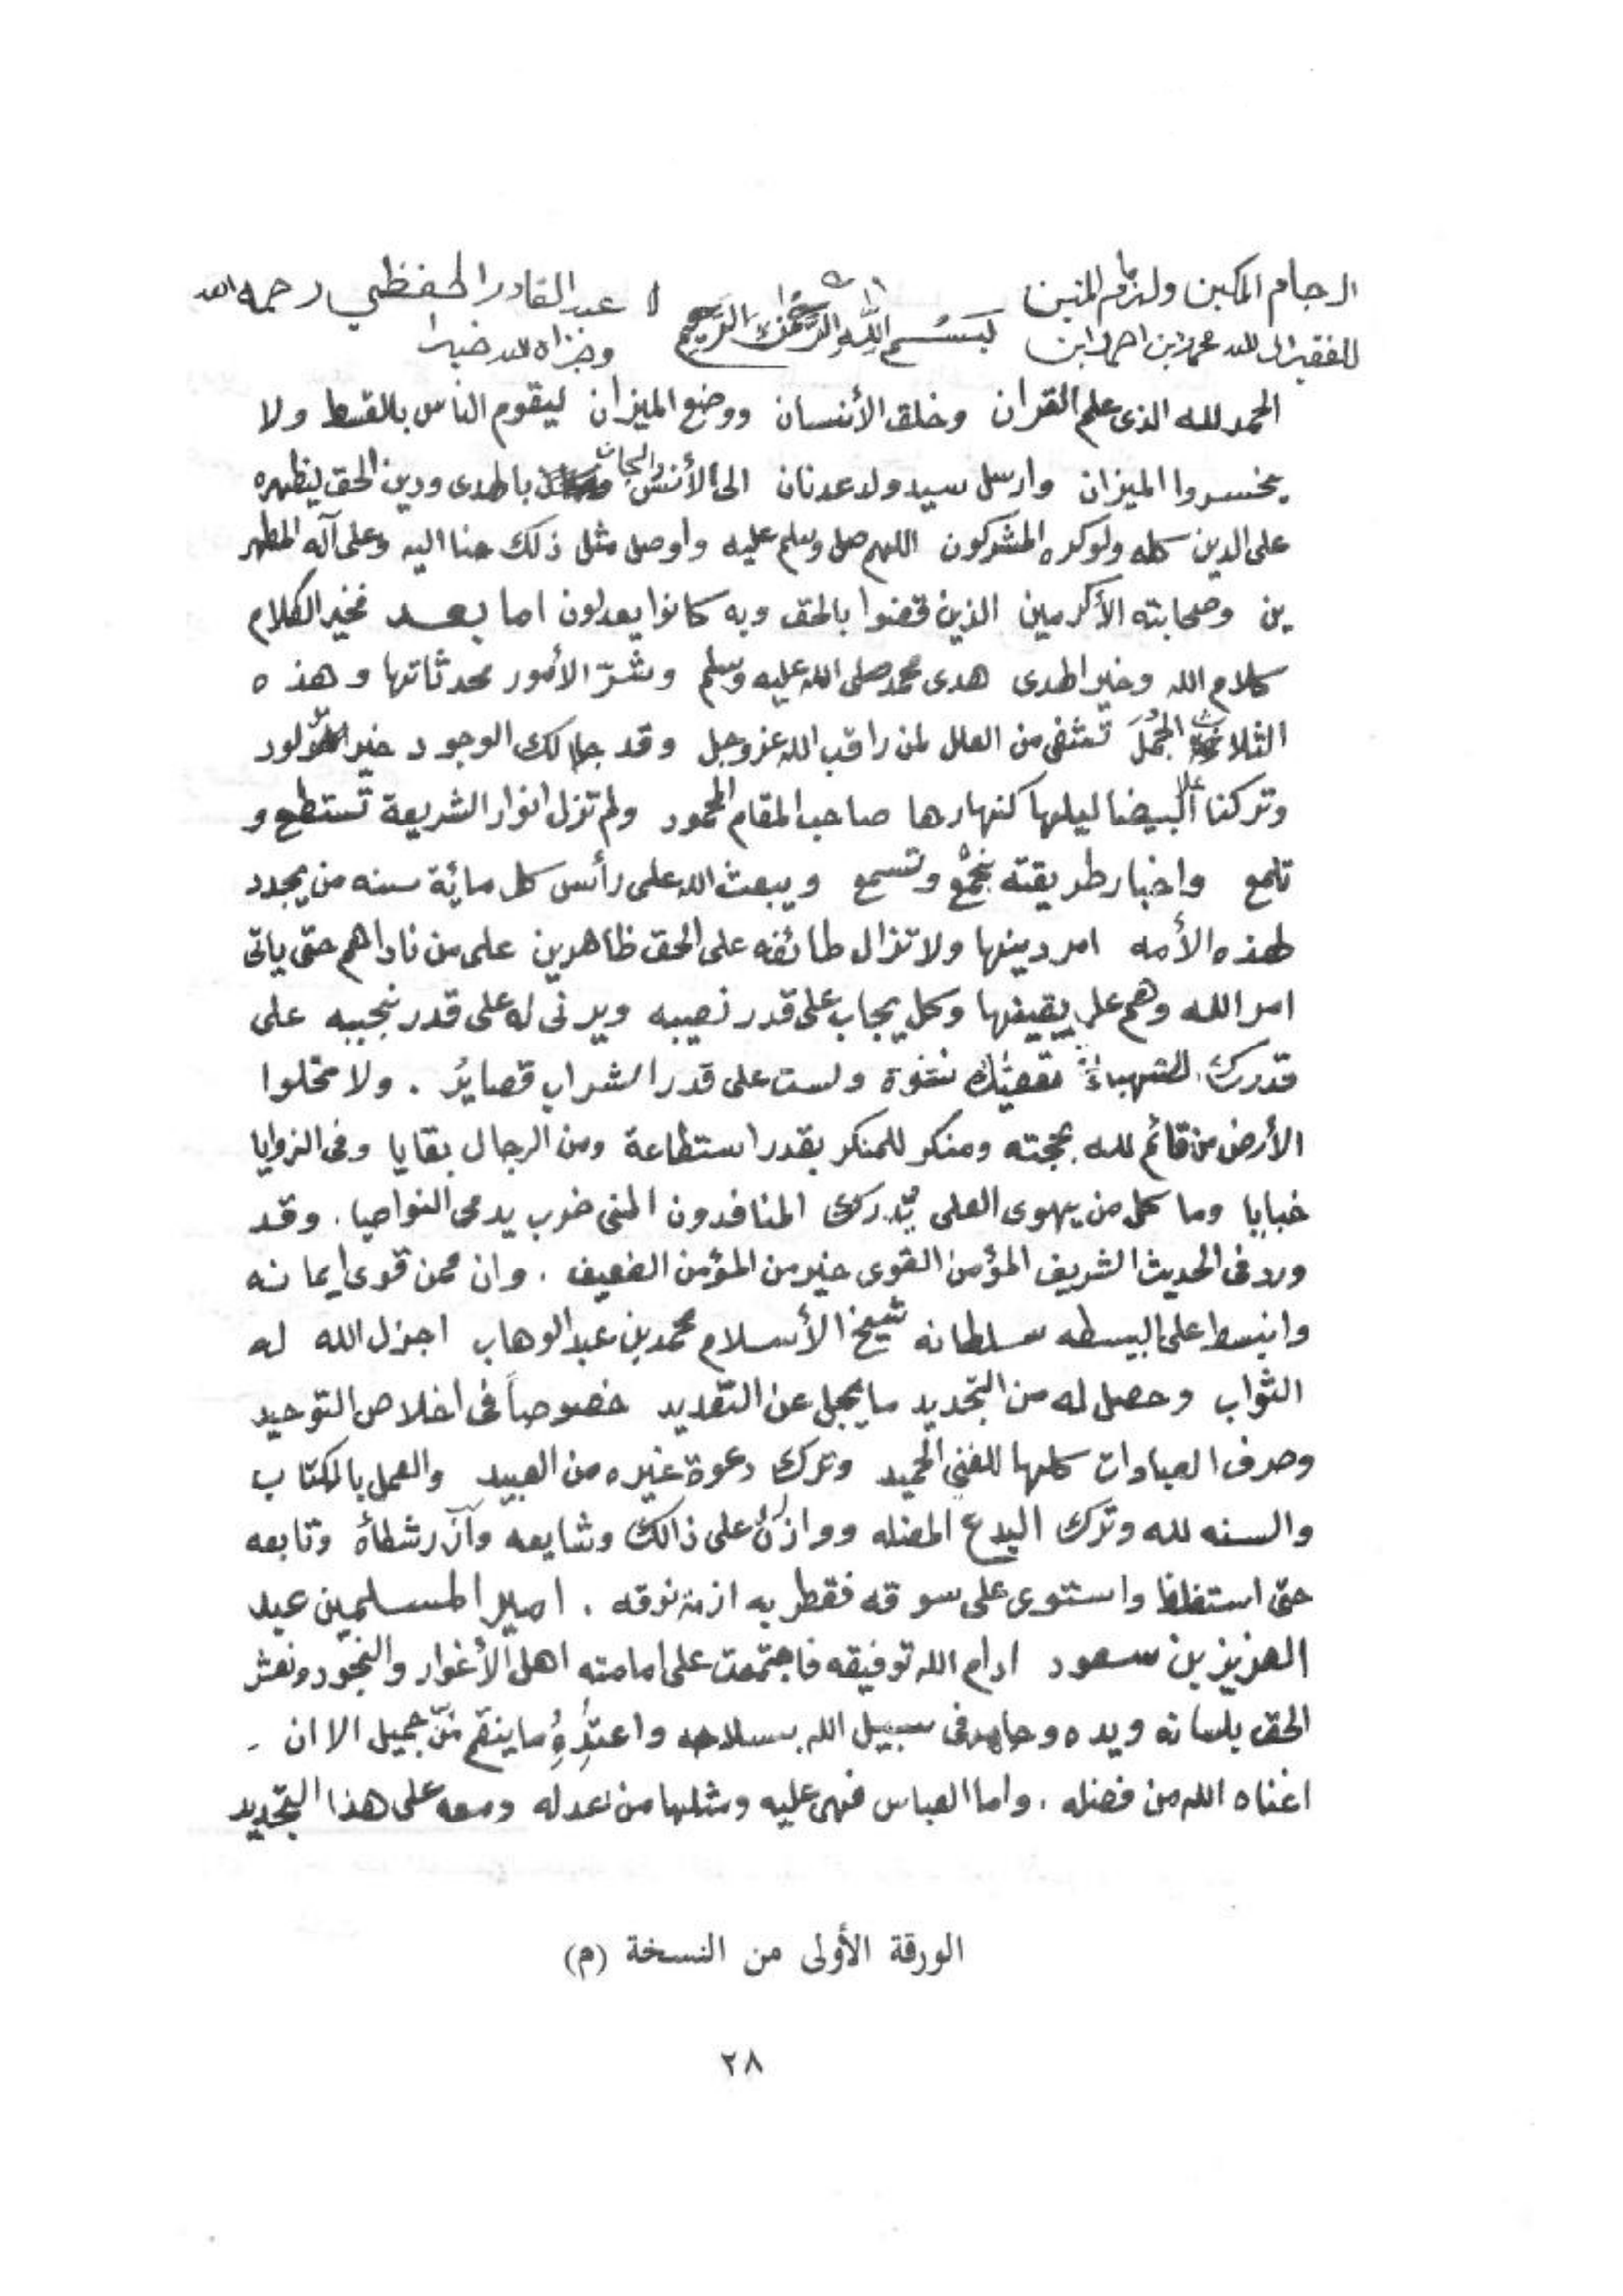 الرجام المكين ولزمام المنين
للفقير الى الله محمد بن احمد ابن
بسم الله الرحمن الرحيم
عبد القادر الحفظي رحمه الله
وجزاه الله خيرا
الحمد لله الذى علم القران وخلق الأنسان ووضع الميزان ليقوم الناس بالقسط ولا
يخسروا الميزان وارسل سيد ولد عدنان الى الأنس والجان بالهدى ودين الحق ليظهره
على الدين كله ولوكره المشركون اللهم صل وسلم عليه واوصل مثل ذلك منا اليه وعلى آله المطهر
ين وصحابته الأكرمين الذين قضوا بالحق وبه كانوا يعدلون اما بعد فخير الكلام
كلام الله وخير الهدى هدى محمد صلى الله عليه وسلم وشرّ الأمور محدثاتها وهذه
الثلاث الجُمل تشفى من العلل لمن راقب الله عز وجل وقد جا لك الوجود خير مولود
وتركنا على البيضا ليلها كنهارها صاحب المقام المحمود ولم تزل انوار الشريعة تستطع و
تلمع واخبار طريقته تجمع وتسمع ويبعث الله على رأس كل مائة سنه من يجدد
لهذه الأمه امر دينها ولا تزال طائفه على الحق ظاهرين على من ناداهم حتى ياتى
امر الله وهم على يقينها وكل يجاب على قدر نصيبه ويرنى له على قدر نجيبه على
قدرك الصهباء تعطيك نشوة ولست على قدر الشراب قصايرُ . ولا تخلوا
الأرض من قائم لله بحجته ومنكر للمنكر بقدر استطاعة ومن الرجال بقايا وفى الزوايا
خبايا وما كل من يهوى العلى يدرك المنافدون المنى ضرب يدمى النواصيا . وقد
ورد فى الحديث الشريف المؤمن القوى خير من المؤمن الضعيف . وان ممن قوى ايمانه
وانبسط على البسيطه سلطانه شيخ الأسلام محمد بن عبد الوهاب اجزل الله له
الثواب وحصل له من التجديد ما يجل عن التعديد خصوصاً فى اخلاص التوحيد
وصرف العبادات كلها للغني الحميد وترك دعوة غيره من العبيد والعمل بالكتاب
والسنه لله وترك البدع المضله ووازره على ذالك وشايعه وآزر شطأه وتابعه
حتى استغلظ واستوى على سوقه فقطر به ازمة نوقه . امير المسلمين عبد
العزيز بن سعود ادام الله توفيقه فاجتمعت على امامته اهل الأغوار والنجود ونعش
الحق بلسانه ويده وجاهد فى سبيل الله بسلاحه واعتدِّهُ ما ينقم من جميل الا ان
اغناه الله من فضله . واما العباس فهى عليه ومثلها من عدله ومعه على هذا التجديد
الورقة الأولى من النسخة (م)
٢٨